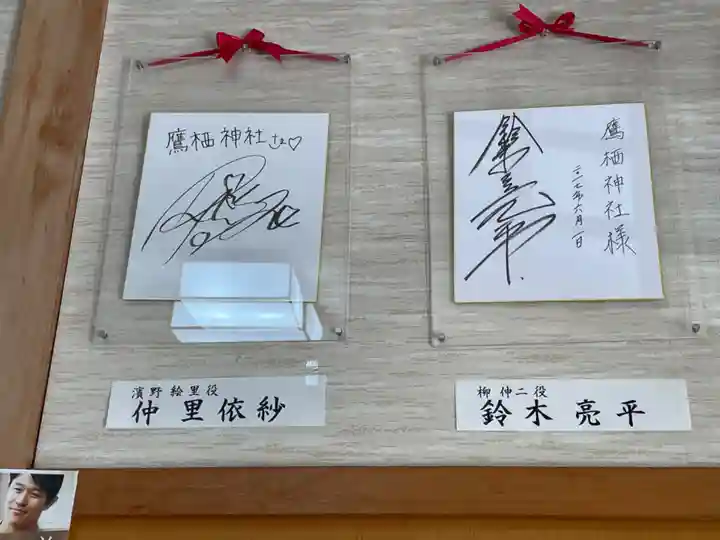 鷹栖神社さま♡
鷹栖神社様
二〇一七年六月一日
鈴木亮平
濱野 絵里役
仲 里依紗
柳 伸二役
鈴木 亮平